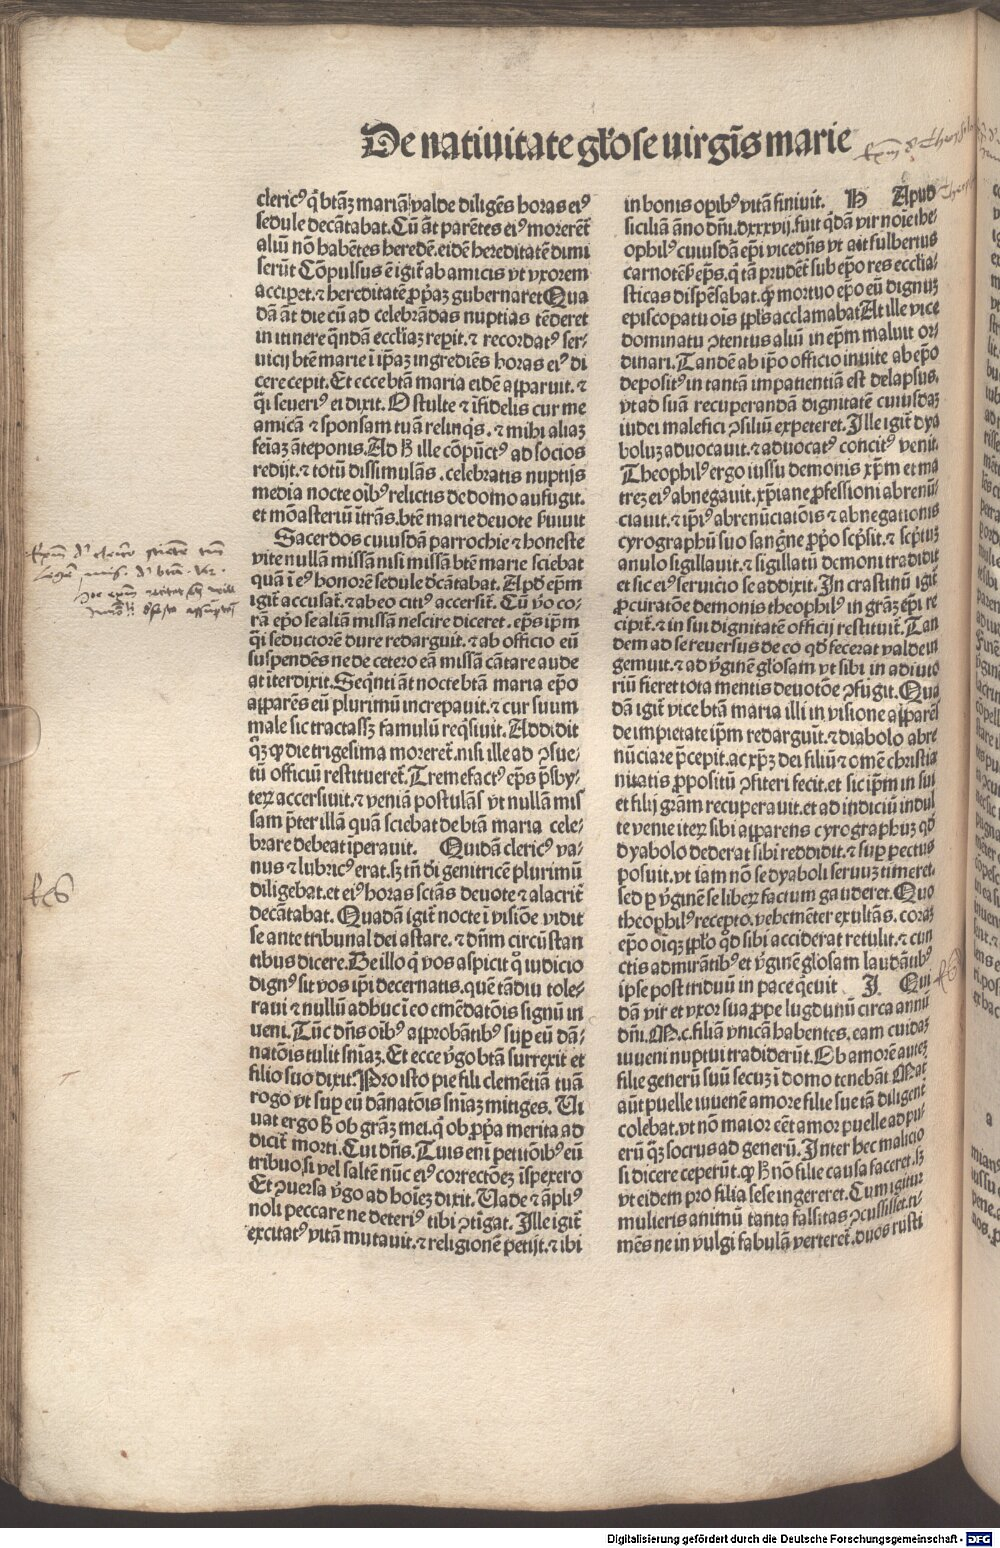 De nativitate gl'ose virgīs marie
cleric⁹ q̄ btāꝫ mariā valde diligēs horas ei⁹
sedule decātabat. Cū āt parētes ei⁹ morerēt̄
aliū nō habētes heredē. eidē hereditatē dimi
serūt Cōpulsus ē igit̄ ab amicis vt vxorem
acciperet. ⁊ hereditatē ꝓpāꝫ gubernaret Qua
dā āt die cū ad celebrādas nuptias tēderet
in itinere q̄ndā eccliaꝫ reperit. ⁊ recordat⁹ ser⸗
uicij btē marie ī ipāꝫ ingrediēs horas ei⁹ di
cere cepit. Et ecce btā maria eidē apparuit. ⁊
q̄i seueri⁹ ei dixit. O stulte ⁊ īfidelis cur me
amicā ⁊ sponsam tuā relinq̄s. ⁊ mihi aliaꝫ
feīaꝫ āteponis. Ad ꝧ ille cōpūct⁹ ad socios
redijt. ⁊ totū dissimulās. celebratis nuptijs
media nocte oīb⁹ relictis de domo aufugit.
et mōasteriū ītrās. btē marie deuote ẜuiuit
Sacerdos cuiusdā parrochie ⁊ honeste
vite nullā missā nisi missā btē marie sciebat
quā ī ei⁹ honorē sedule dcātabat. Apd̄ ep̄m
igit̄ accusat̄. ⁊ ab eo citi⁹ accersit̄. Cū v̄o co⸗
rā ep̄o se aliā missā nescire diceret. ep̄s ip̄m
q̄i seductorē dure redarguit. ⁊ ab officio eū
suspendēs ne de cetero eā missā cātare aude
at iterdixit. Seq̄nti āt nocte btā maria ep̄o
apparēs eū plurimū increpauit. ⁊ cur suum
male sic tractassꝫ famulū req̄siuit. Addidit
q̄ꝫ ꝙ die trigesima morereт̄. nisi ille ad ꝯsue⸗
tū officiū restitueret̄. Tremefact⁹ ep̄s p̄sby⸗
teꝝ accersiuit. ⁊ veniā postulās vt nullā mis
sam p̄ter illā quā sciebat de btā maria cele⸗
brare debeat īperauit. Quidā cleric⁹ va⸗
nus ⁊ lubric⁹ erat. sꝫ tn̄ dī genitricē plurimū
diligebat. et ei⁹ horas sctās deuote ⁊ alacrit̄
decātabat. Quadā igit̄ nocte ī visiōe vidit
se ante tribunal dei astare. ⁊ dn̄m circūstan
tibus dicere. De illo q̄ vos aspicit q̊ iudicio
dign⁹ sit vos ip̄i decernatis. quē tādiu tole⸗
raui ⁊ nullū adhuc ī eo emēdatōis signū in
ueni. Tūc dn̄s oīb⁹ approbātib⁹ suꝑ eū dā⸗
natōis tulit sn̄iaꝫ. Et ecce v̄go btā surrexit et
filio suo dixit. Pro isto pie fili clemētiā tuā
rogo vt suꝑ eū dānatōis sn̄iaꝫ mitiges. Vi
uat ergo ꝧ ob grāꝫ mei. q̄ ob ꝓp̄a merita ad
dicit̄ morti. Cui dn̄s. Tuis eni petitōib⁹ eū
tribuo. si vel saltē nūc ei⁹ correctōeꝫ īspexero
Et ꝯuersa v̄go ad hoīeꝫ dixit. Vade ⁊ āpli⁹
noli peccare ne deteri⁹ tibi ꝯtīgat. Ille igit̄
excitat⁹ vitā mutauit. ⁊ religionē petijt. ⁊ ibi
in bonis oꝑib⁹ vitā finiuit. H Apud
siciliā āno dn̄i. dxxxvij. fuit q̄dā vir noīe the⸗
ophil⁹ cuiusdā ep̄i vicedn̄s vt ait fulbertus
carnotēẜ ep̄s. q̄ tā prudēt̄ sub ep̄o res ecclia⸗
sticas dispēsabat. ꝙ mortuo ep̄o eū dignuꝫ
episcopatu oīs ppl̄s acclamabat At ille vice
dominatu ꝯtentus aliū in ep̄m maluit or⸗
dinari. Tandē ab ip̄o officio inuite ab ep̄o
deposit⁹ in tantā impatientiā est delapsus.
vt ad suā recuperandā dignitatē cuiusdaꝫ
iudei malefici ꝯsiliū expeteret. Ille igit̄ dya
boluꝫ aduocauit. ⁊ aduocat⁹ concit⁹ venit.
Theophil⁹ ergo iussu demonis xp̄m et ma
treꝫ ei⁹ abnegauit. xp̄iane ꝓfessioni abrenū⸗
ciauit. ⁊ ip̄i⁹ abrenūciatōis ⁊ abnegationis
cyrographū suo sangn̄e ꝓp̄o scp̄sit. ⁊ sc̄ptuꝫ
anulo sigillauit. ⁊ sigillatū demoni tradidit
et sic ei⁹ seruicio se addixit. In crastinū igit̄
ꝓcuratōe demonis theophil⁹ in grāꝫ ep̄i re
cipit̄. ⁊ in sui dignitatē officij restituit̄. Tan
dem ad se reuersus de eo qd̄ fecerat valde in
gemuit. ⁊ ad v̄ginē gl̄osam vt sibi in adiuto
riū fieret tota mentis deuotōe ꝯfūgit. Qua
dā igit̄ vice btā maria illi in visione apparēs
de impietate ip̄m redarguit. ⁊ diabolo abre
nūciare p̄cepit. ac xp̄ꝫ dei filiū ⁊ omē christia
nitatis ꝓpositū ꝯfiteri fecit. et sic ip̄m in sui
et filij grām recuperauit. et ad indiciū indul
te venie iteꝝ sibi apparens cyrographuꝫ qd̄
dyabolo dederat sibi reddidit. ⁊ suꝑ pectus
posuit. vt iam nō se dyaboli seruuꝫ timeret.
sed ꝑ v̄ginē se libeꝝ factum gauderet. Quo
theophil⁹ recepto. vehemēter exultās. coraꝫ
ep̄o oīqꝫ ppl̄o qd̄ sibi acciderat retulit. ⁊ cun
ctis admirātib⁹ et v̄ginē gl̄osam laudātib⁹
ipse post triduū in pace q̄euit J. Qui
dā vir et vxor sua prope lugdunū circa annū
dn̄i. M.c. filiam vnicā habentes. eam cuidaꝫ
iuueni nuptui tradiderūt. Ob amorē auteꝫ
filie generū suū secuꝫ ī domo tenebāt Mat̄
aūt puelle iuuenē amore filie sue tā diligent̄
colebat. vt nō maior eēt amor puelle ad pu⸗
erū q̄ꝫ socrus ad generū. Inter hec malicio
si dicere ceperūt. ꝙ ꝧ nō filie causa faceret. sꝫ
vt eidem pro filia sese ingereret. Cum igitur
mulieris animū tanta falsitas ꝯcussisset. ti⸗
mēs ne in vulgi fabulā verteret̄. duos rusti
Digitalisierung gefördert durch die Deutsche Forschungsgemeinschaft - DFG